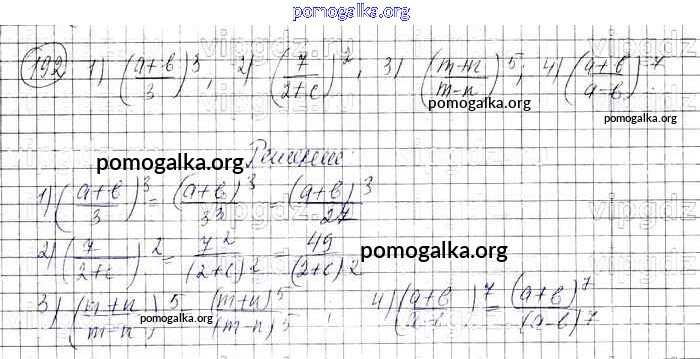 pomogalka.org
192 1) ((a+b)/3)^3, 2) (7/(2+c))^2; 3) ((m+n)/(m-n))^5; 4) ((a+b)/(a-b))^7
pomogalka.org pomogalka.org
Решение:
pomogalka.org
1) ((a+b)/3)^3 = (a+b)^3/3^3 = (a+b)^3/27
2) (7/(2+c))^2 = 7^2/(2+c)^2 = 49/(2+c)^2
pomogalka.org
3) ((m+n)/(m-n))^5 (m+n)^5/(m-n)^5; 4) ((a+b)/(a-b))^7 = (a+b)^7/(a-b)^7
pomogalka.org pomogalka.org